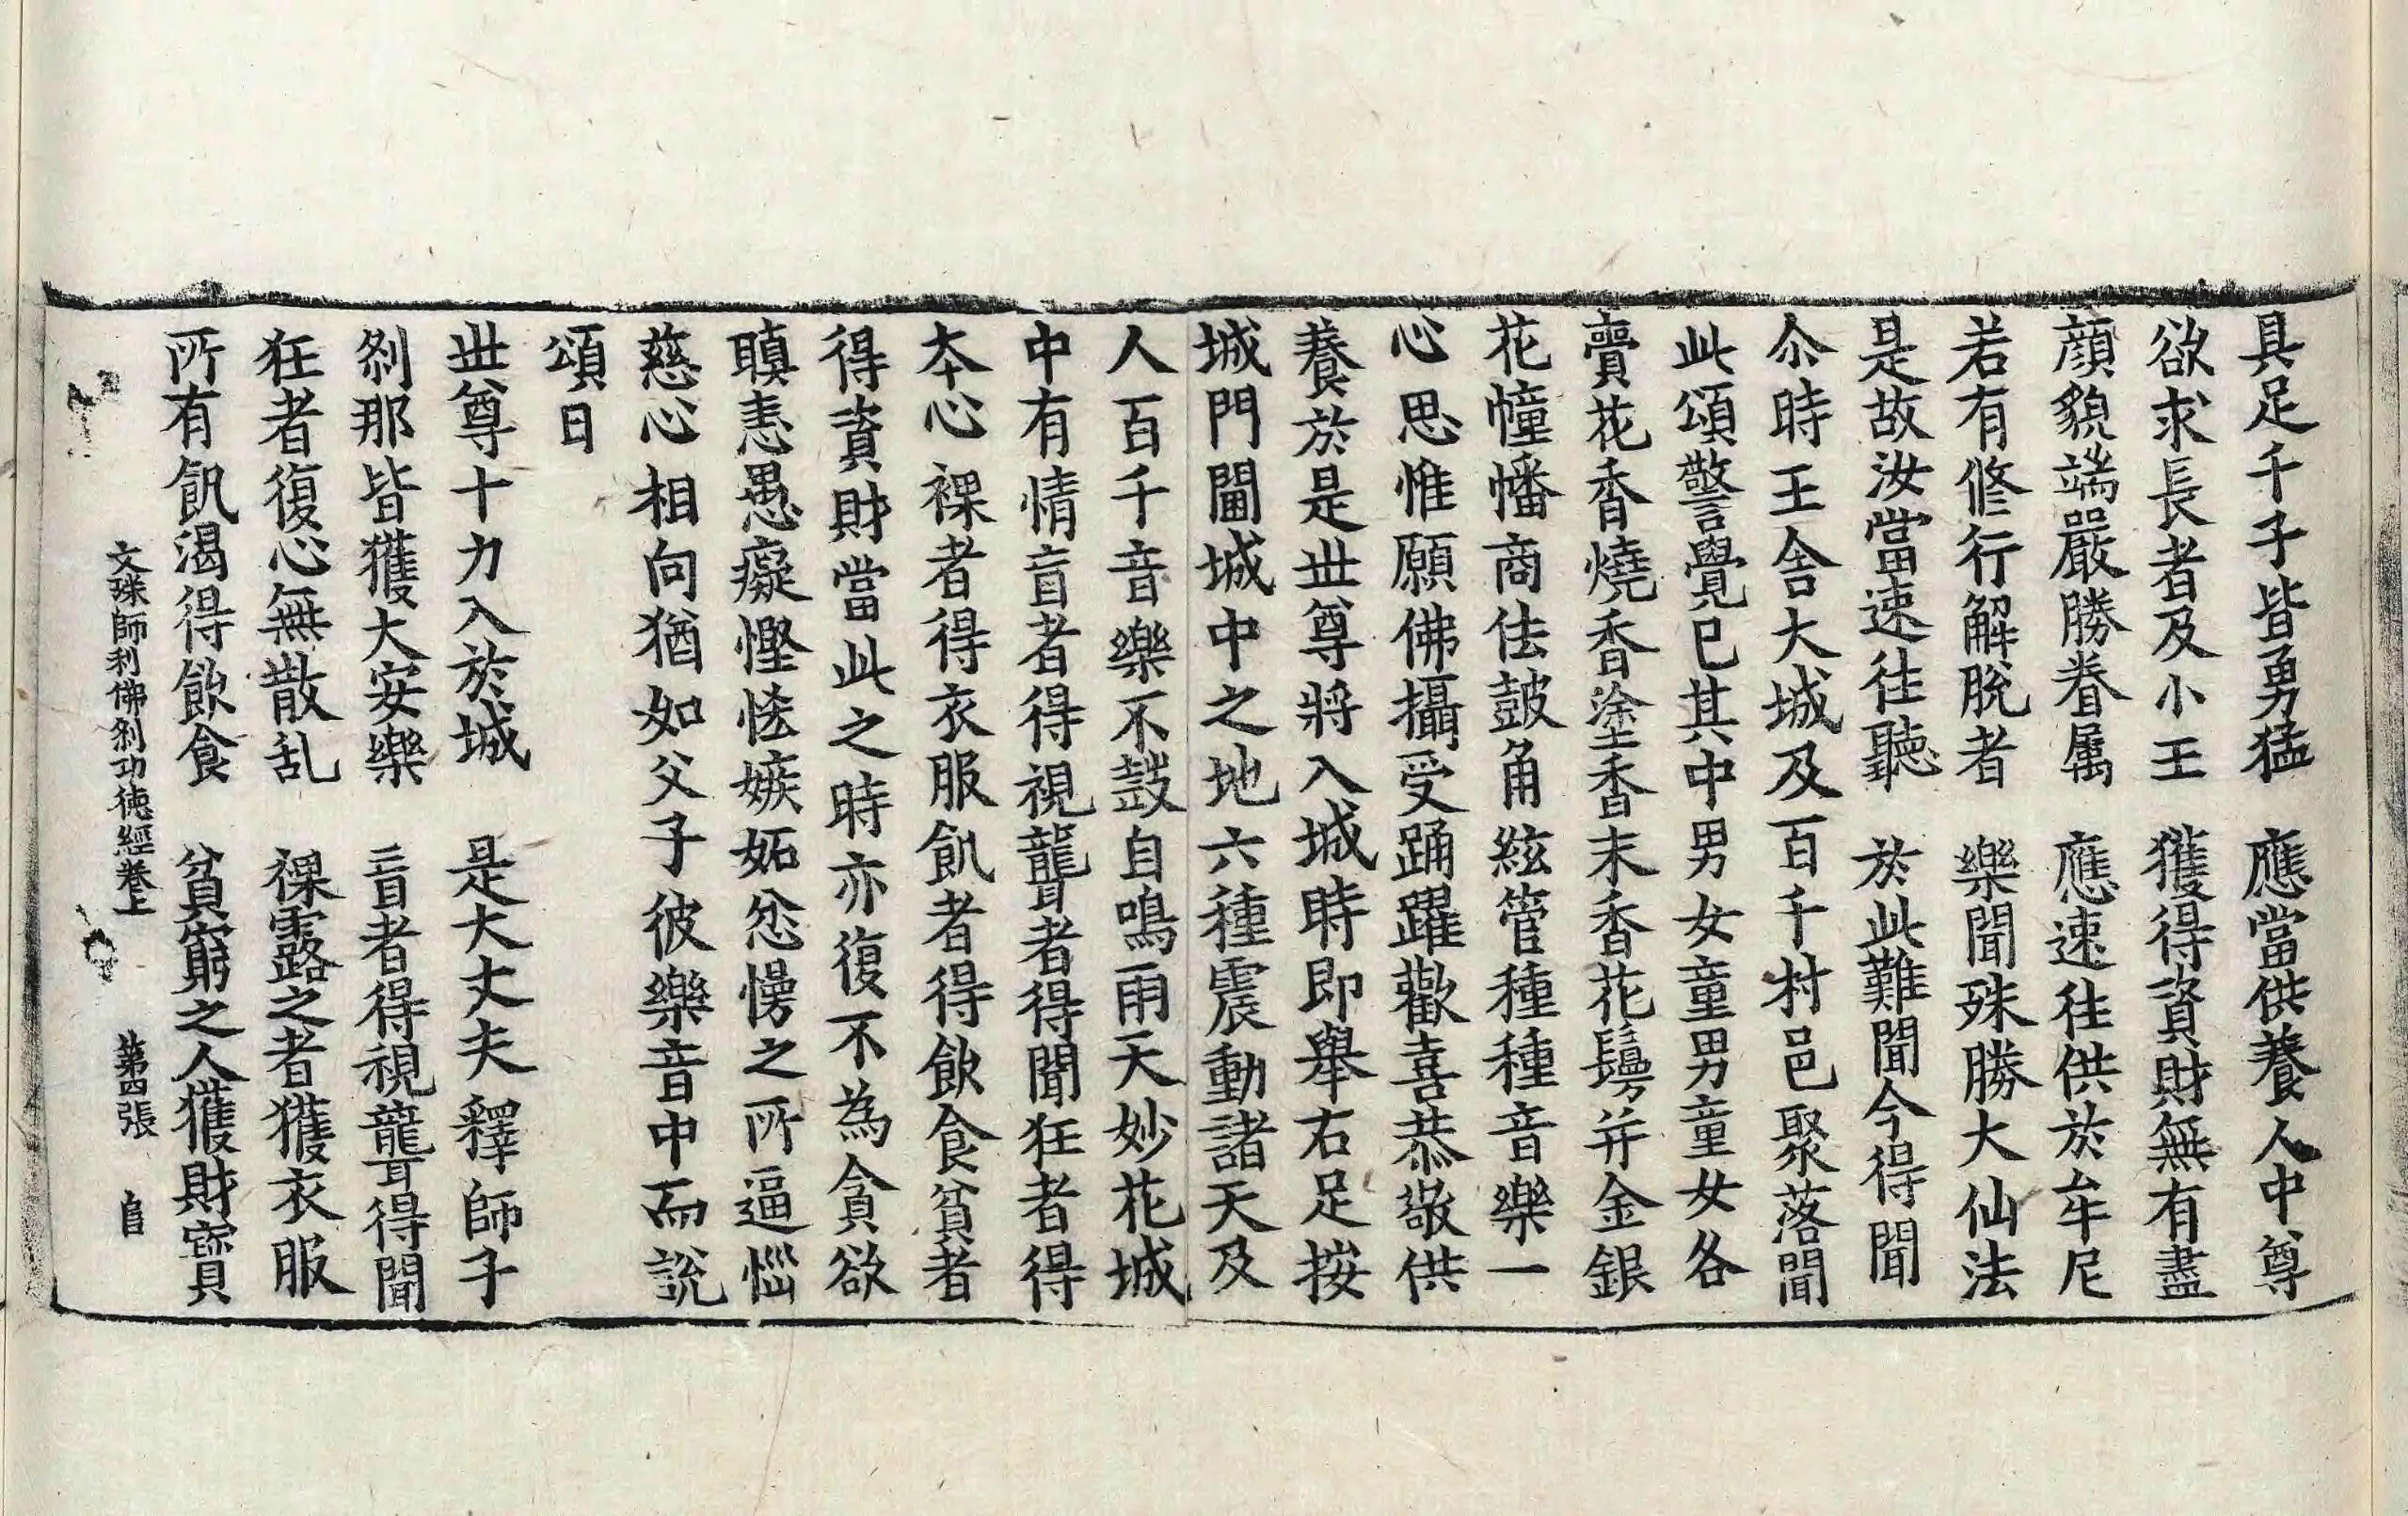 具足千子皆勇猛　應當供養人中尊
欲求長者及小王　獲得資財無有盡
顔貌端嚴勝眷属　應速往供於牟尼
若有修行解脫者　樂聞殊勝大仙法
是故汝當速往聽　於此難聞今得聞
尒時王舎大城及百千村邑聚落聞
此頌警覺已其中男女童男童女各
賷花香燒香塗香末香花鬘并金銀
花幢幡商佉皷角絃管種種音樂一
心思惟願佛攝受踊躍歡喜恭敬供
養於是丗尊將入城時即舉右足按
城門閫城中之地六種震動諸天及
人百千音樂不鼓自鳴雨天妙花城
中有情盲者得視聾者得聞狂者得
本心裸者得衣服飢者得飲食貧者
得資財當此之時亦復不為貪欲
瞋恚愚癡慳恡嫉妬忿慢之所逼惱
慈心相向猶如父子彼樂音中而說
頌曰
丗尊十力入於城　是大丈夫釋師子
刹那皆獲大安樂　盲者得視聾得聞
狂者復心無散乱　裸露之者獲衣服
所有飢渴得飲食　貧窮之人獲財寶
文殊師利佛刹功徳經卷上　第四張　自